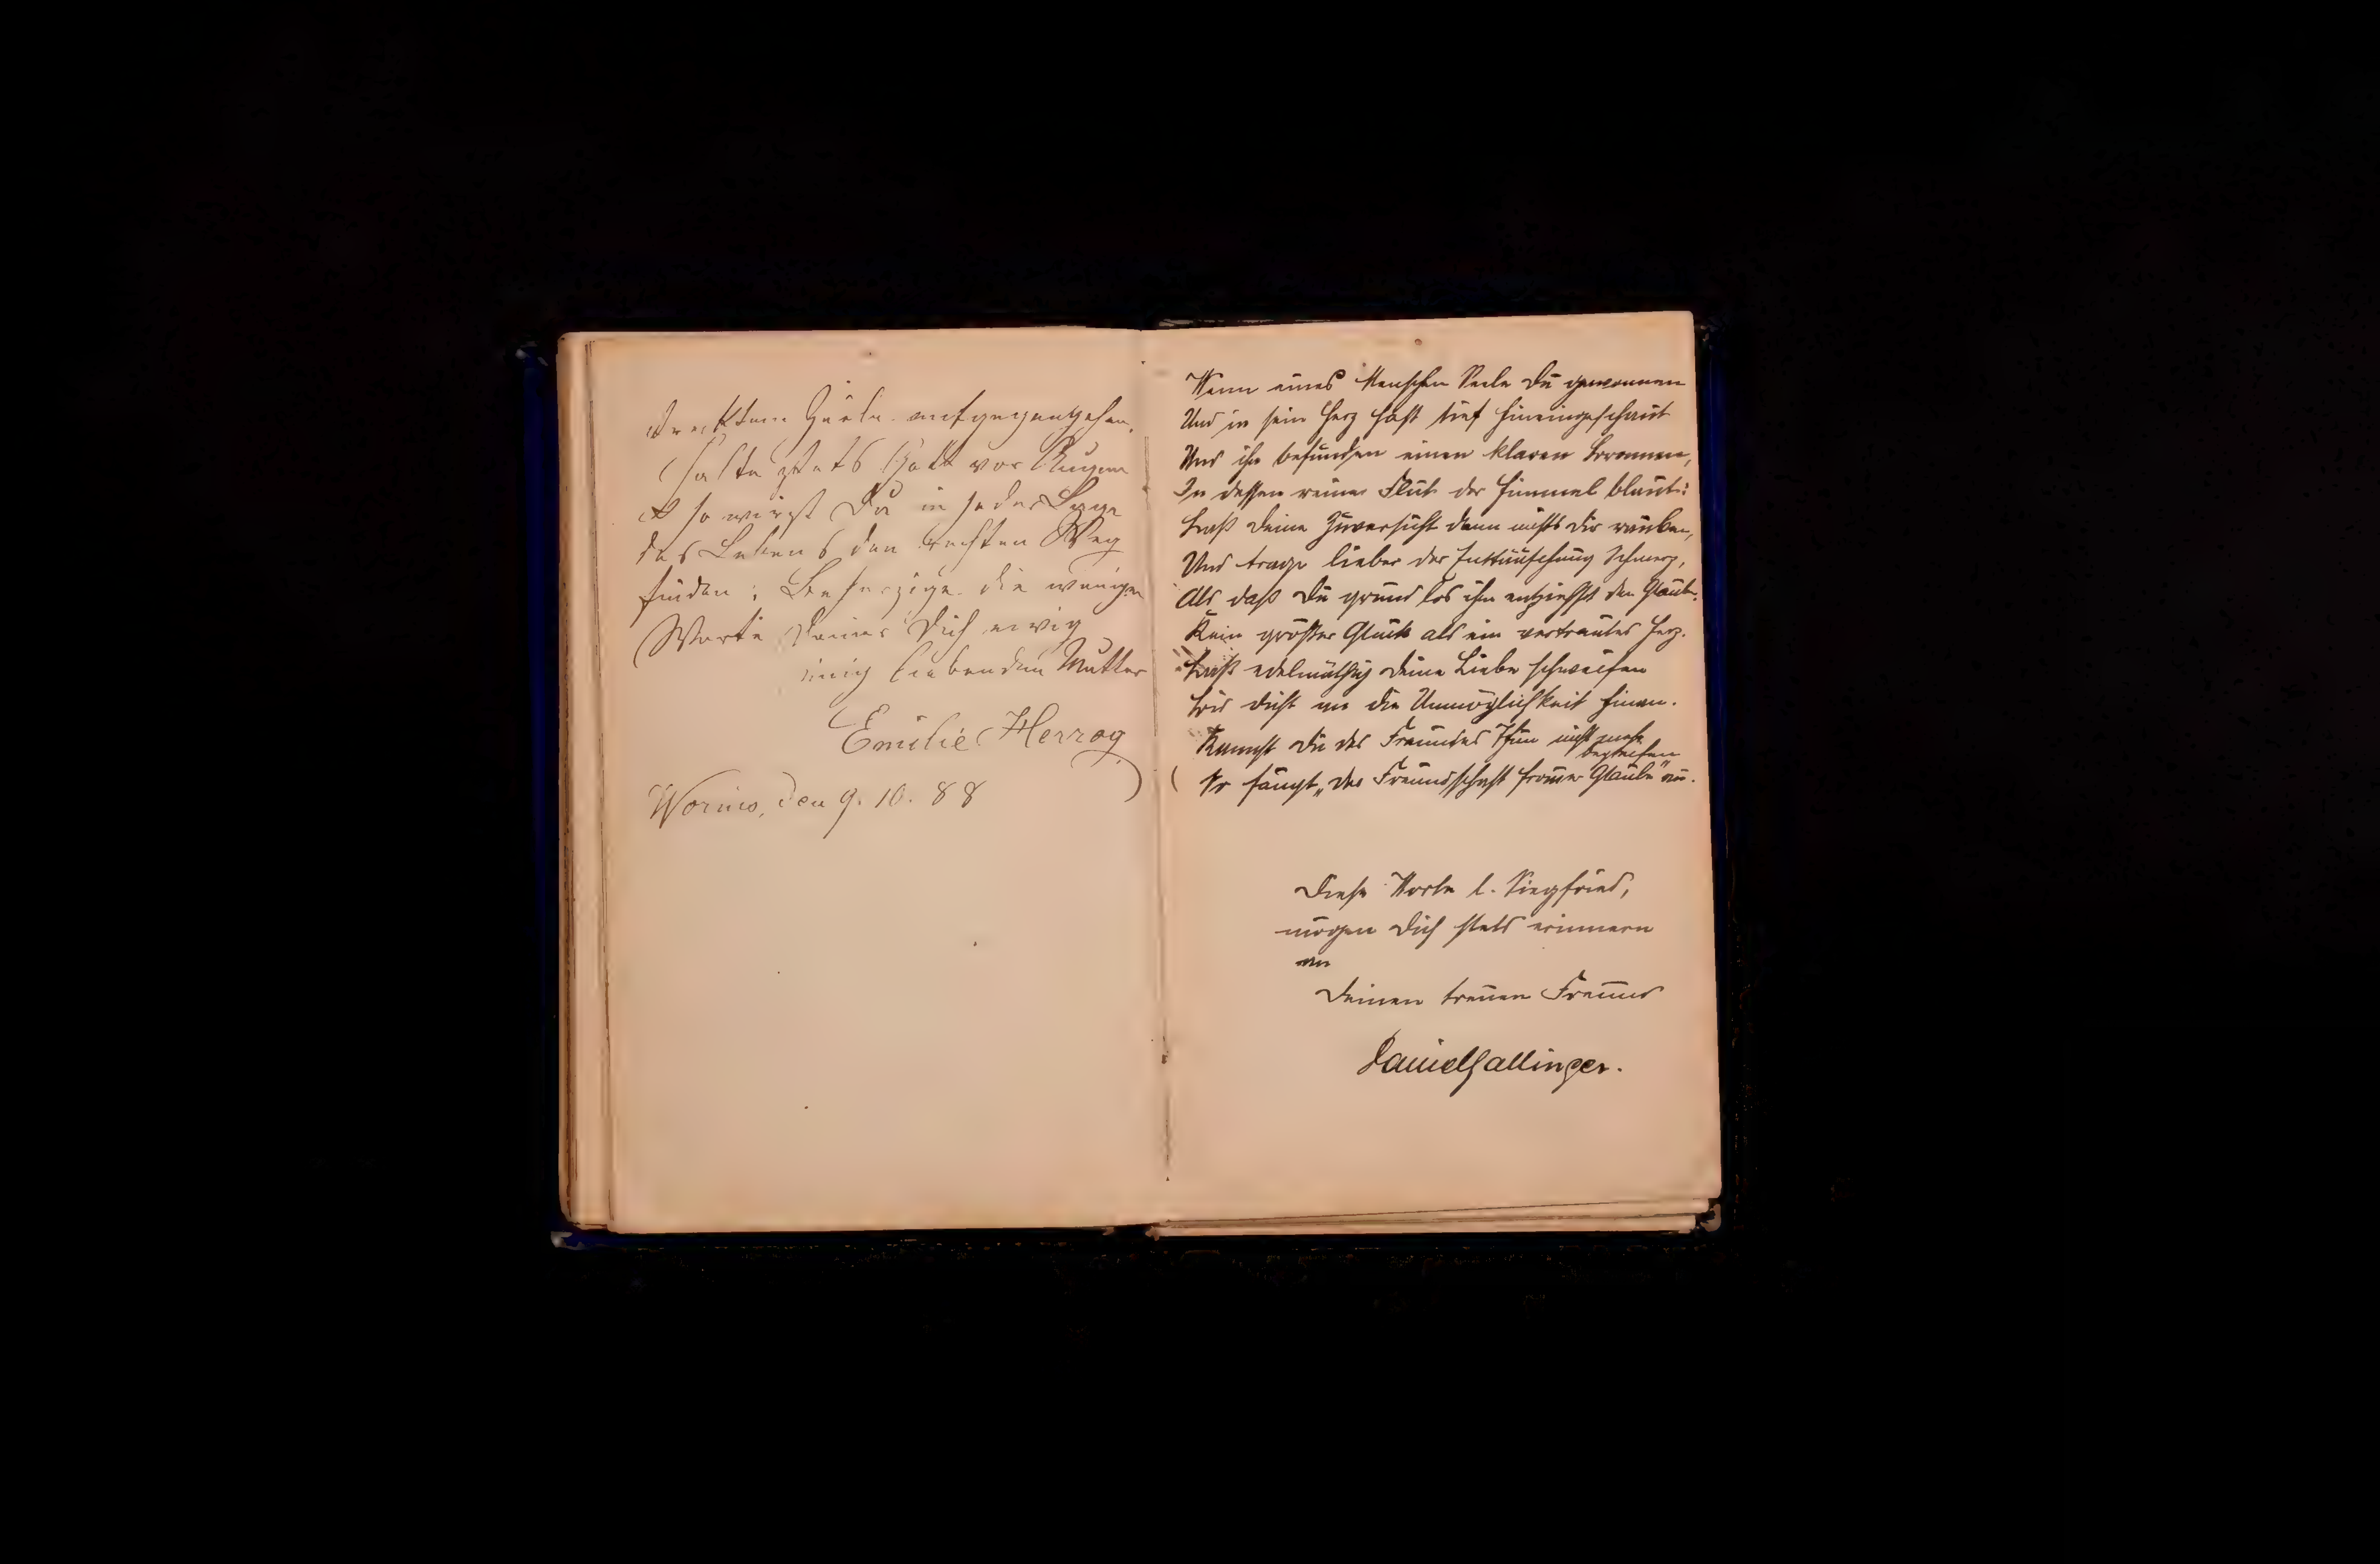 Ziele entgegengehen.
Halte stets Gott vor Augen
& so wirst Du in jeder Lage
des Lebens den rechten Weg
finden; Beherzige die wenigen
Worte Deiner Dich ewig
innig liebenden Mutter
Emilie Herzog
Worms, den 9. 10. 88
Wenn eines Menschen Seele Du gewonnen
Und in sein Herz hast tief hineingeschaut
Und ihn befunden einen klaren Bronnen,
In dessen reiner Flut der Himmel blaut:
Laß Deine Zuversicht dann nichts Dir rauben,
Und trage lieber der Enttäuschung Schmerz,
Als daß Du grundlos ihm entziehst den Glaub.
Kein größer Glück als ein vertrautes Herz.
Laß edelmüthig Deine Liebe schweifen
Bis dicht an die Unmöglichkeit hinan.
Kannst Du des Freundes Thun nicht mehr
begreifen"
So fängt „der Freundschaft fromer Glaube" an.
Diese Worte l. Siegfried,
mögen Dich stets erinnern
an
Deinen treuen Freund
Daniel Gallinger.